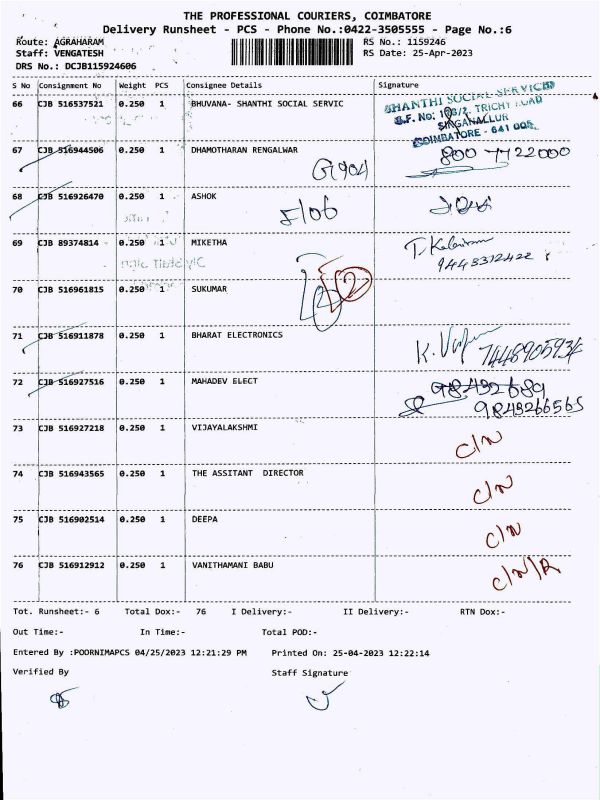 THE PROFESSIONAL COURIERS, COIMBATORE
Delivery Runsheet - PCS - Phone No.:0422-3505555 - Page No.:6
Route: AGRAHARAM RS No.: 1159246
Staff: VENGATESH RS Date: 25-Apr-2023
DRS No.: DCJB115924606
S No Consignment No Weight PCS Consignee Details Signature
66 CJB 516537521 0.250 1 BHUVANA- SHANTHI SOCIAL SERVIC
SHANTHI SOCIAL SERVICES
S.F. No: TRICHY ROAD
SINGANALLUR
COIMBATORE - 641 005
67 CJB 516944506 0.250 1 DHAMOTHARAN RENGALWAR 800 7722000
G1904
68 CJB 516926470 0.250 1 ASHOK
F106
69 CJB 89374814 0.250 1 MIKETHA
9443312422
70 CJB 516961815 0.250 1 SUKUMAR
71 CJB 516911878 0.250 1 BHARAT ELECTRONICS
7448905934
72 CJB 516927516 0.250 1 MAHADEV ELECT
9843266565
73 CJB 516927218 0.250 1 VIJAYALAKSHMI
C/N
74 CJB 516943565 0.250 1 THE ASSITANT DIRECTOR
C/N
75 CJB 516902514 0.250 1 DEEPA
C/N
76 CJB 516912912 0.250 1 VANITHAMANI BABU C/N/R
Tot. Runsheet:- 6 Total Dox:- 76 I Delivery:- II Delivery:- RTN Dox:-
Out Time:- In Time:- Total POD:-
Entered By :POORNIMAPCS 04/25/2023 12:21:29 PM Printed On: 25-04-2023 12:22:14
Verified By Staff Signature